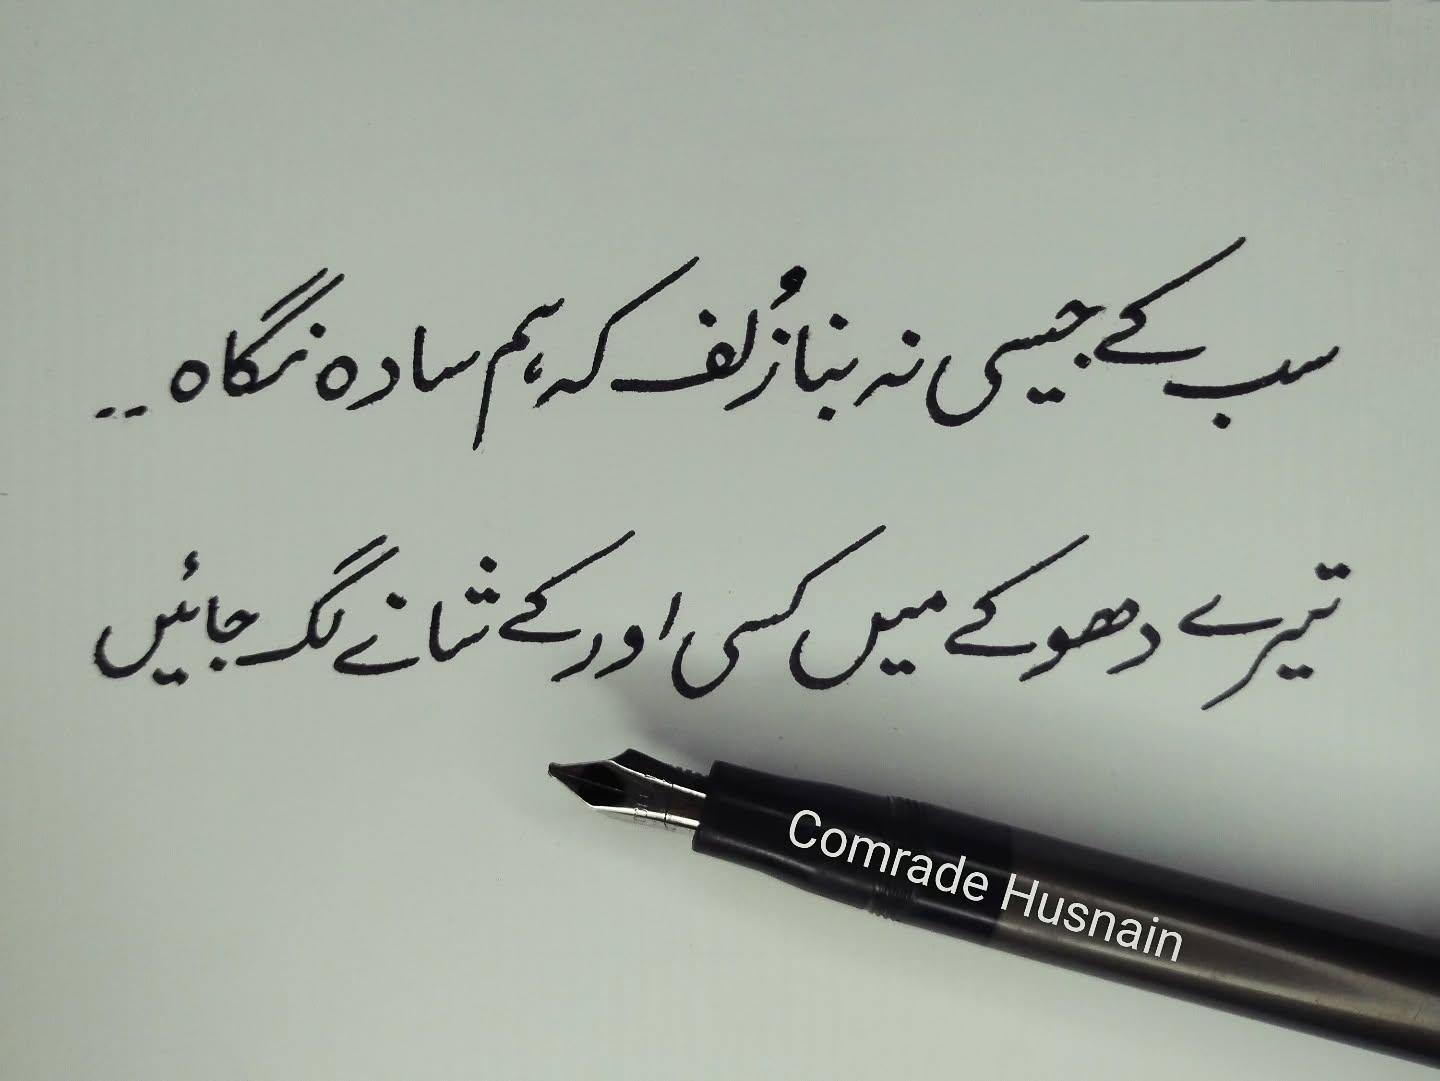 سب کے جیسی نہ بنا زُلف کہ ہم سادہ نگاہ ..
تیرے دھوکے میں کسی اور کے شانے لگ جائیں
Comrade Husnain